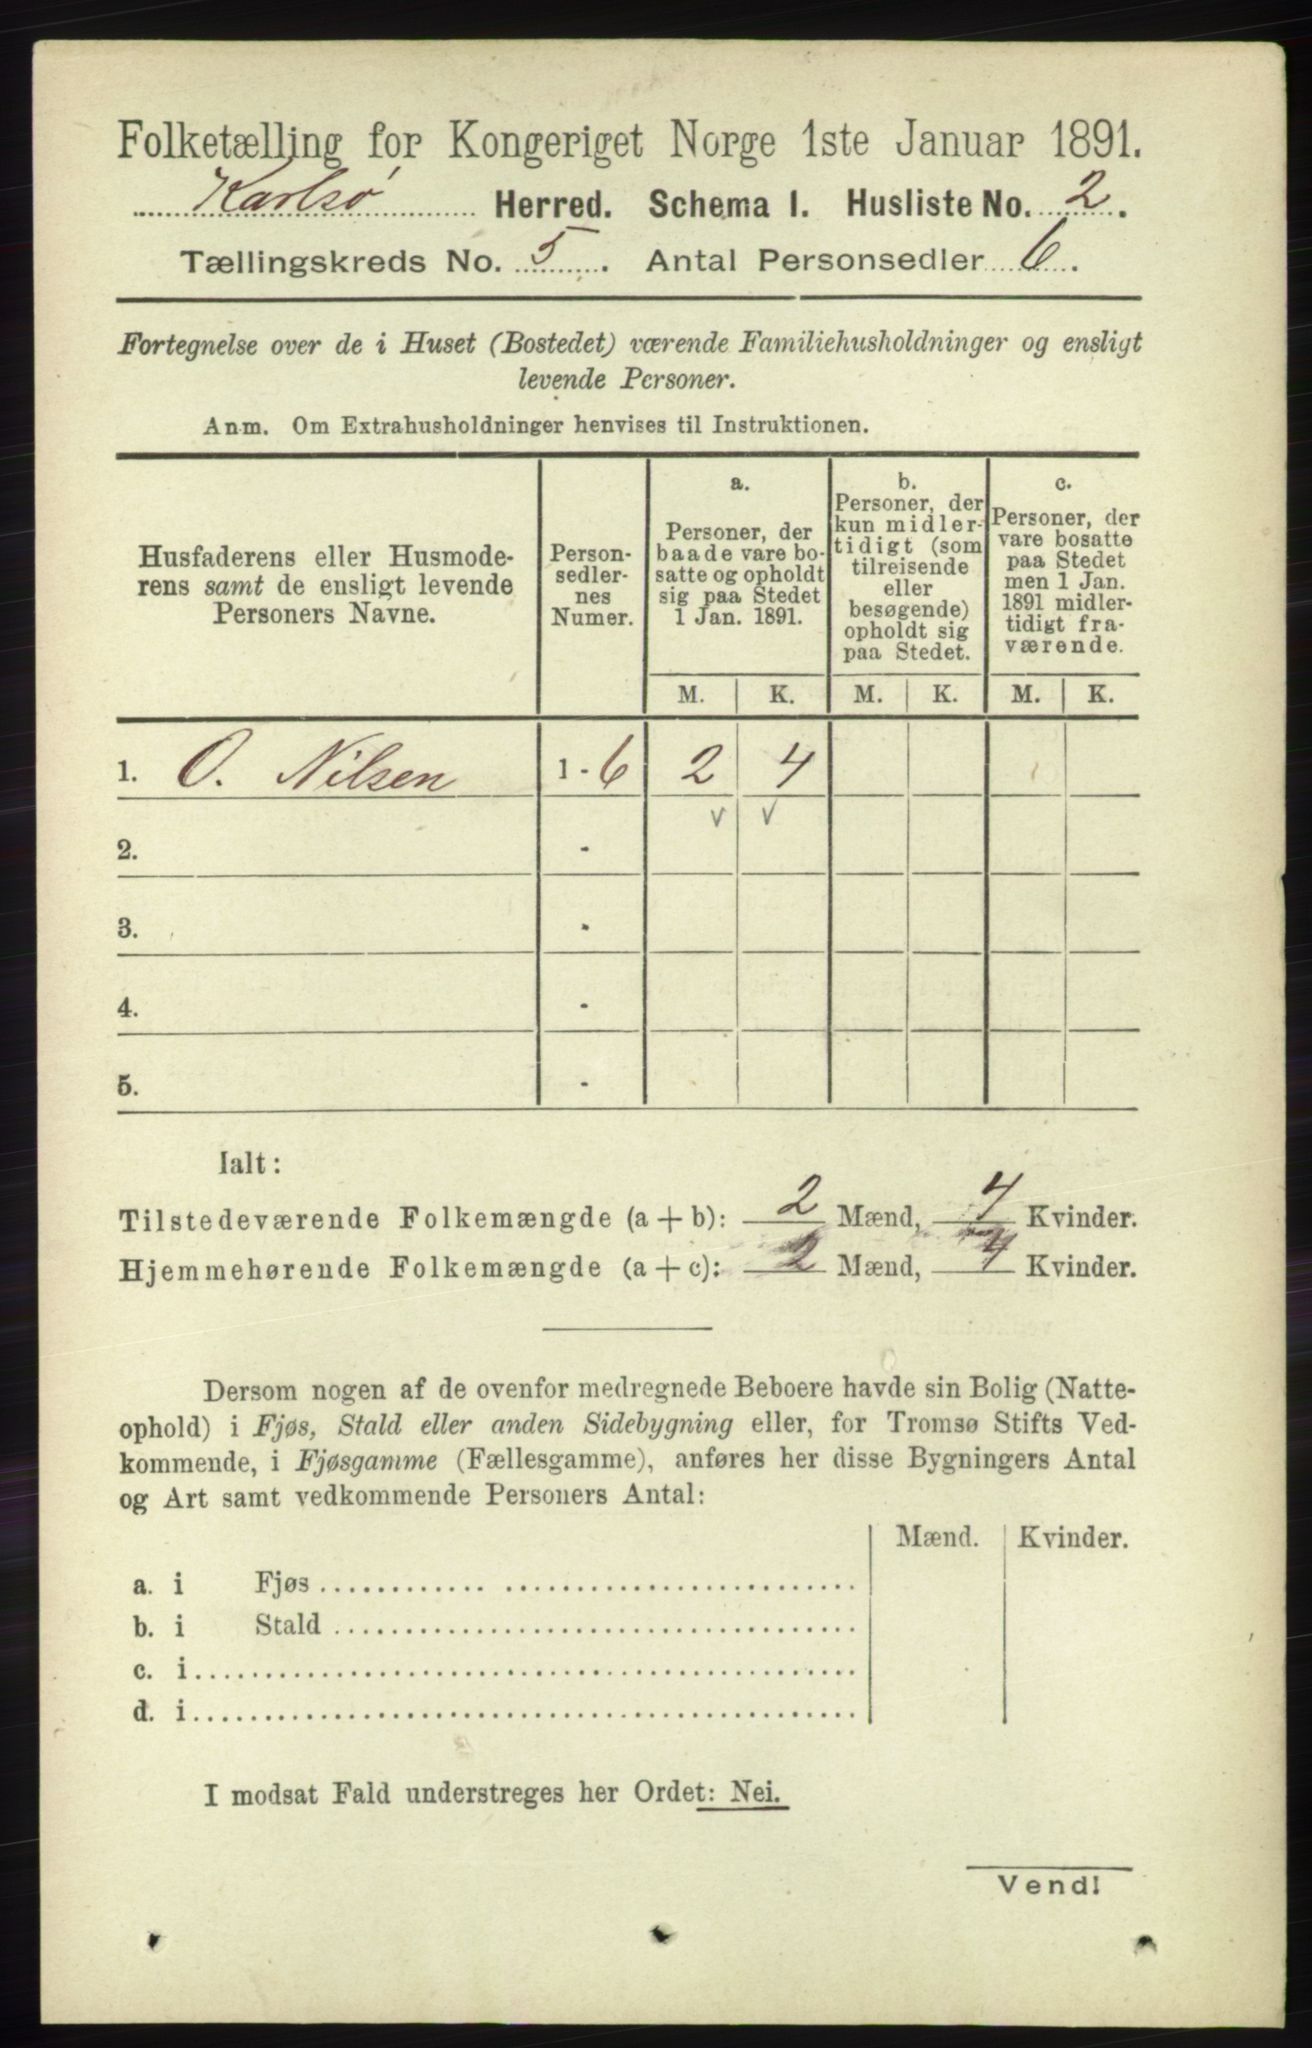 Folketælling for Kongeriget Norge 1ste Januar 1891.
Karlsø Herred. Schema I. Husliste No. 2.
Tællingskreds No. 5. Antal Personsedler 6.
Fortegnelse over de i Huset (Bostedet) værende Familiehusholdninger og ensligt
levende Personer.
Anm. Om Extrahusholdninger henvises til Instruktionen.
Husfaderens eller Husmode-
rens samt de ensligt levende
Personers Navne.
Person-
sedler-
nes
Numer.
a.
Personer, der
baade vare bo-
satte og opholdt
sig paa Stedet
1 Jan. 1891.
b.
Personer, der
kun midler-
tidigt (som
tilreisende
eller
besøgende)
opholdt sig
paa Stedet.
c.
Personer, der
vare bosatte
paa Stedet
men 1 Jan.
1891 midler-
tidigt fra-
værende.
M. K. M. K. M. K.
1. O. Nilsen 1 - 6 2 4
2. -
3. -
4. -
5. -
Ialt:
Tilstedeværende Folkemængde (a + b): 2 Mænd, 4 Kvinder.
Hjemmehørende Folkemængde (a + c): 2 Mænd, 4 Kvinder.
Dersom nogen af de ovenfor medregnede Beboere havde sin Bolig (Natte-
ophold) i Fjøs, Stald eller anden Sidebygning eller, for Tromsø Stifts Ved-
kommende, i Fjøsgamme (Fællesgamme), anføres her disse Bygningers Antal
og Art samt vedkommende Personers Antal:
Mænd. Kvinder.
a. i Fjøs
b. i Stald
c. i
d. i
I modsat Fald understreges her Ordet: Nei.
Vend!